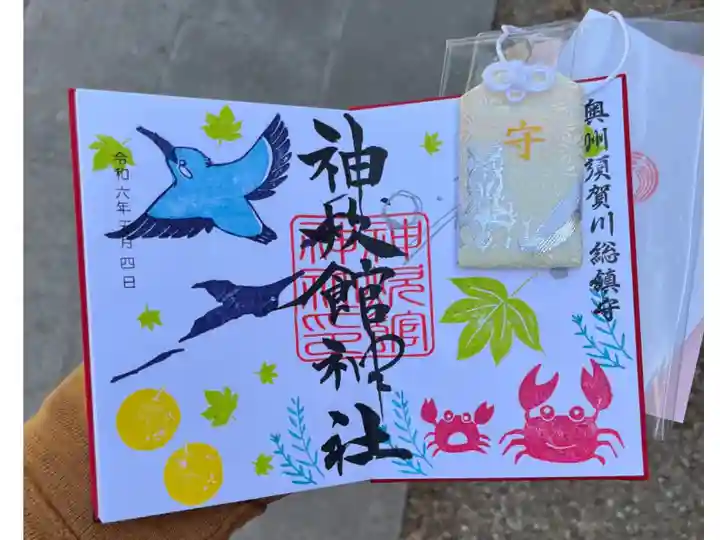 奥州須賀川総鎮守
守
神炊館神社
令和六年五月四日